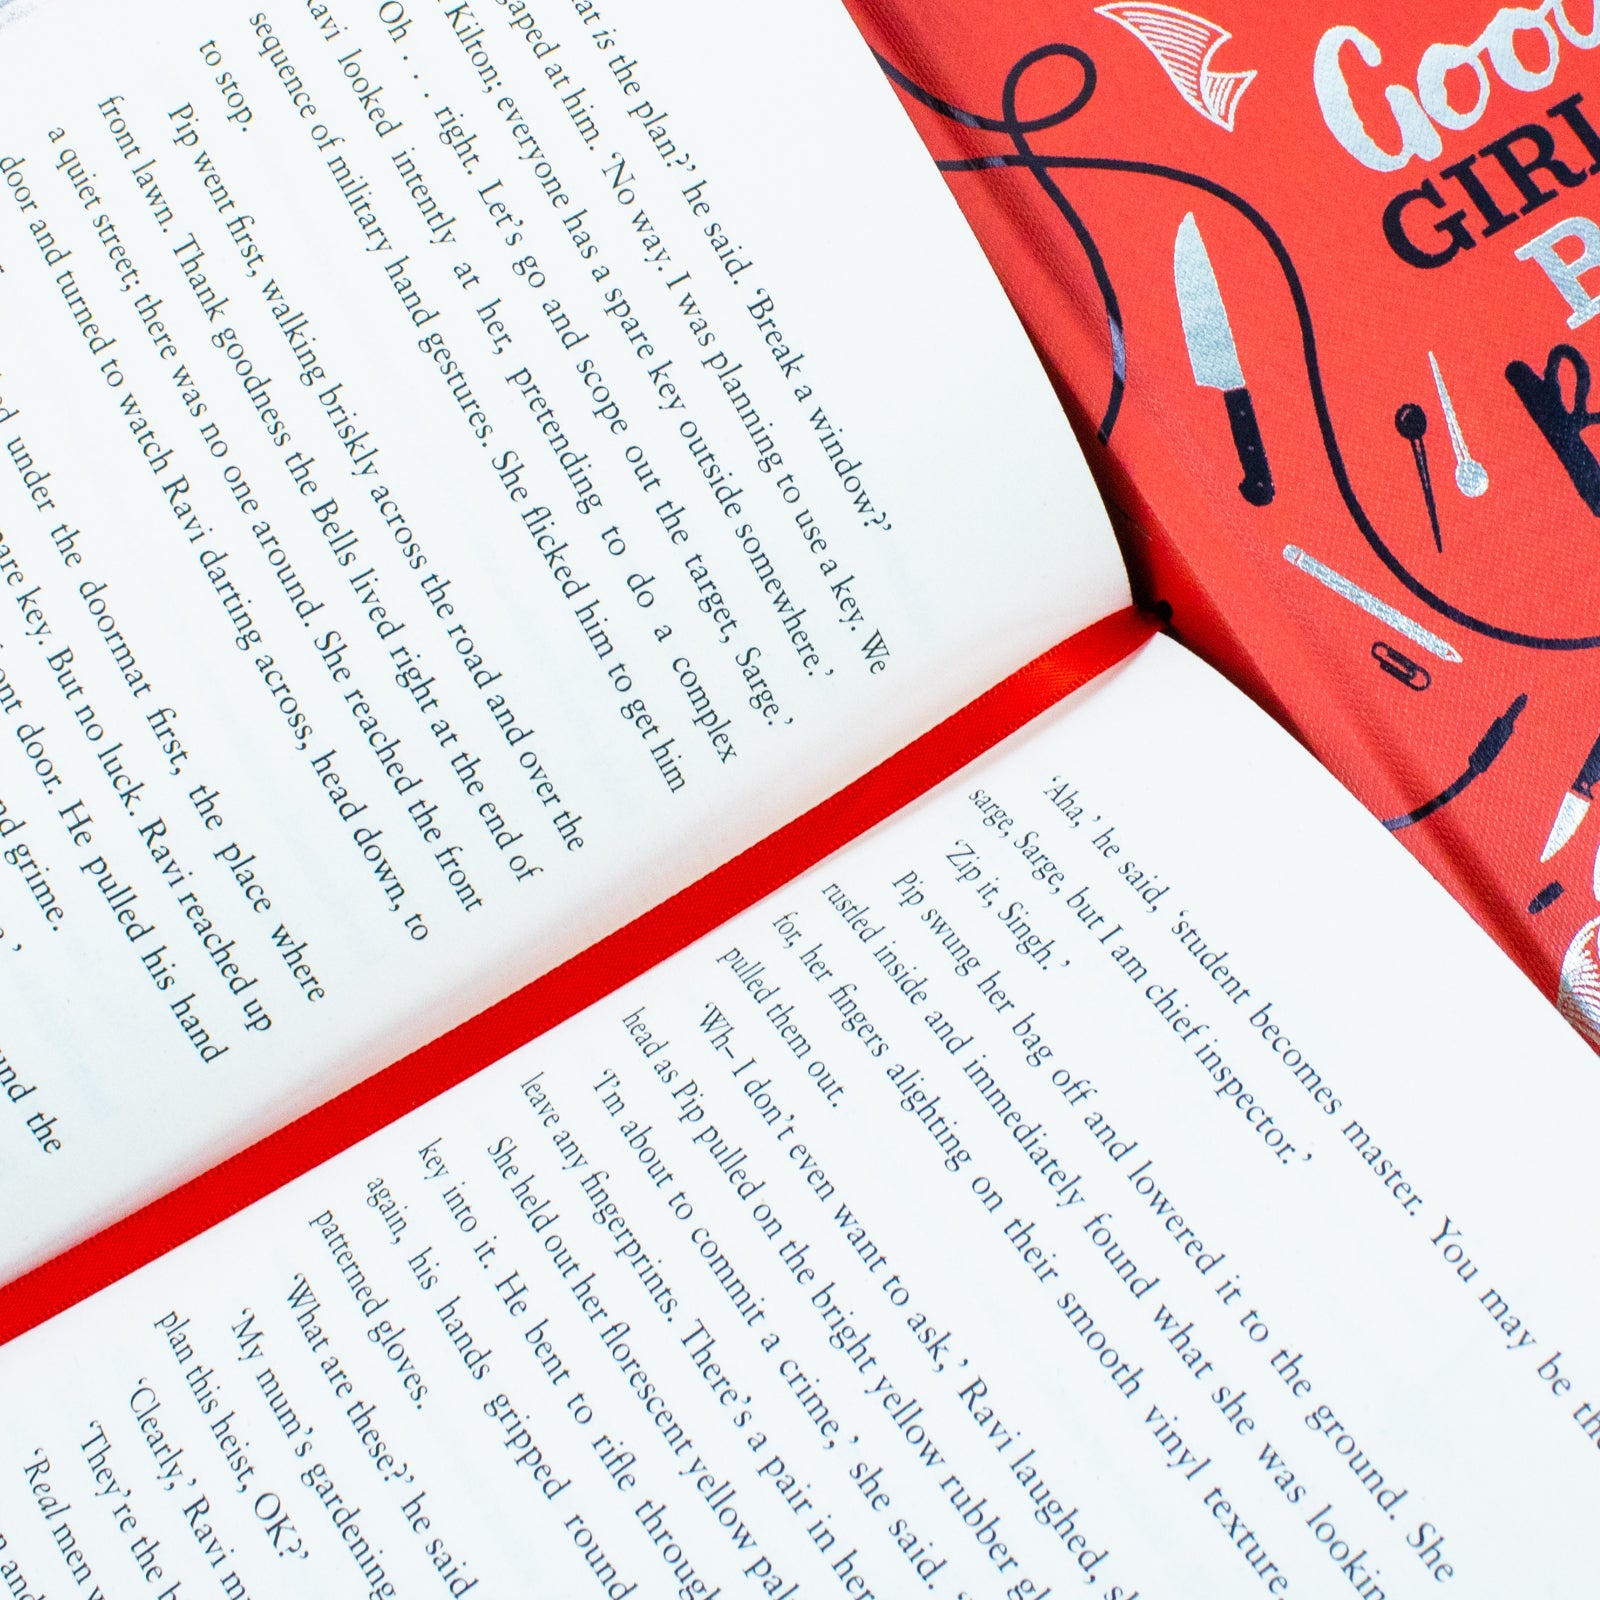 at is the plan?’ he said. ‘Break a window?’
gaped at him. ‘No way. I was planning to use a key. We
Kilton; everyone has a spare key outside somewhere.’
Oh . . . right. Let’s go and scope out the target, Sarge.’
avi looked intently at her, pretending to do a complex
sequence of military hand gestures. She flicked him to get him
to stop.
Pip went first, walking briskly across the road and over the
front lawn. Thank goodness the Bells lived right at the end of
a quiet street; there was no one around. She reached the front
door and turned to watch Ravi darting across, head down, to
ed under the doormat first, the place where
are key. But no luck. Ravi reached up
ont door. He pulled his hand
nd grime.
und the
‘Aha,’ he said, ‘student becomes master. You may be th
sarge, Sarge, but I am chief inspector.’
‘Zip it, Singh.’
Pip swung her bag off and lowered it to the ground. She
rustled inside and immediately found what she was lookin
for, her fingers alighting on their smooth vinyl texture.
pulled them out.
‘Wh– I don’t even want to ask,’ Ravi laughed, s
head as Pip pulled on the bright yellow rubber gl
‘I’m about to commit a crime,’ she said. ‘
leave any fingerprints. There’s a pair in her
She held out her florescent yellow pal
key into it. He bent to rifle through
again, his hands gripped round
patterned gloves.
‘What are these?’ he said
‘My mum’s gardening
plan this heist, OK?’
‘Clearly,’ Ravi m
‘They’re the b
‘Real men w
n and
Good
GIRL
B